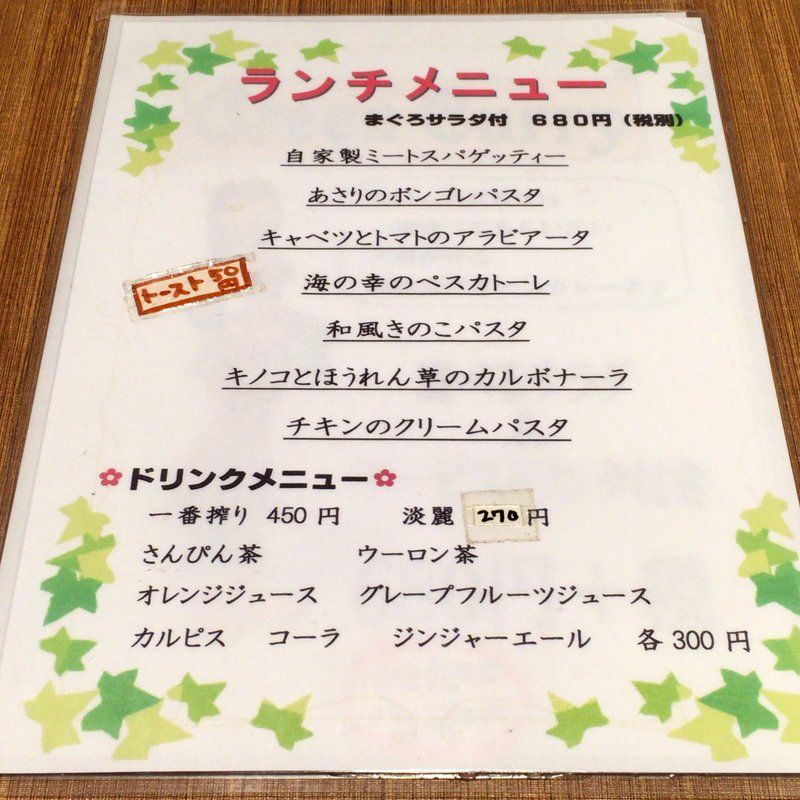 ランチメニュー
まぐろサラダ付　６８０円（税別）
自家製ミートスパゲッティー
あさりのボンゴレパスタ
キャベツとトマトのアラビアータ
トースト50円
海の幸のペスカトーレ
和風きのこパスタ
キノコとほうれん草のカルボナーラ
チキンのクリームパスタ
ドリンクメニュー
一番搾り 450 円　淡麗 270 円
さんぴん茶　ウーロン茶
オレンジジュース　グレープフルーツジュース
カルピス　コーラ　ジンジャーエール　各 300 円